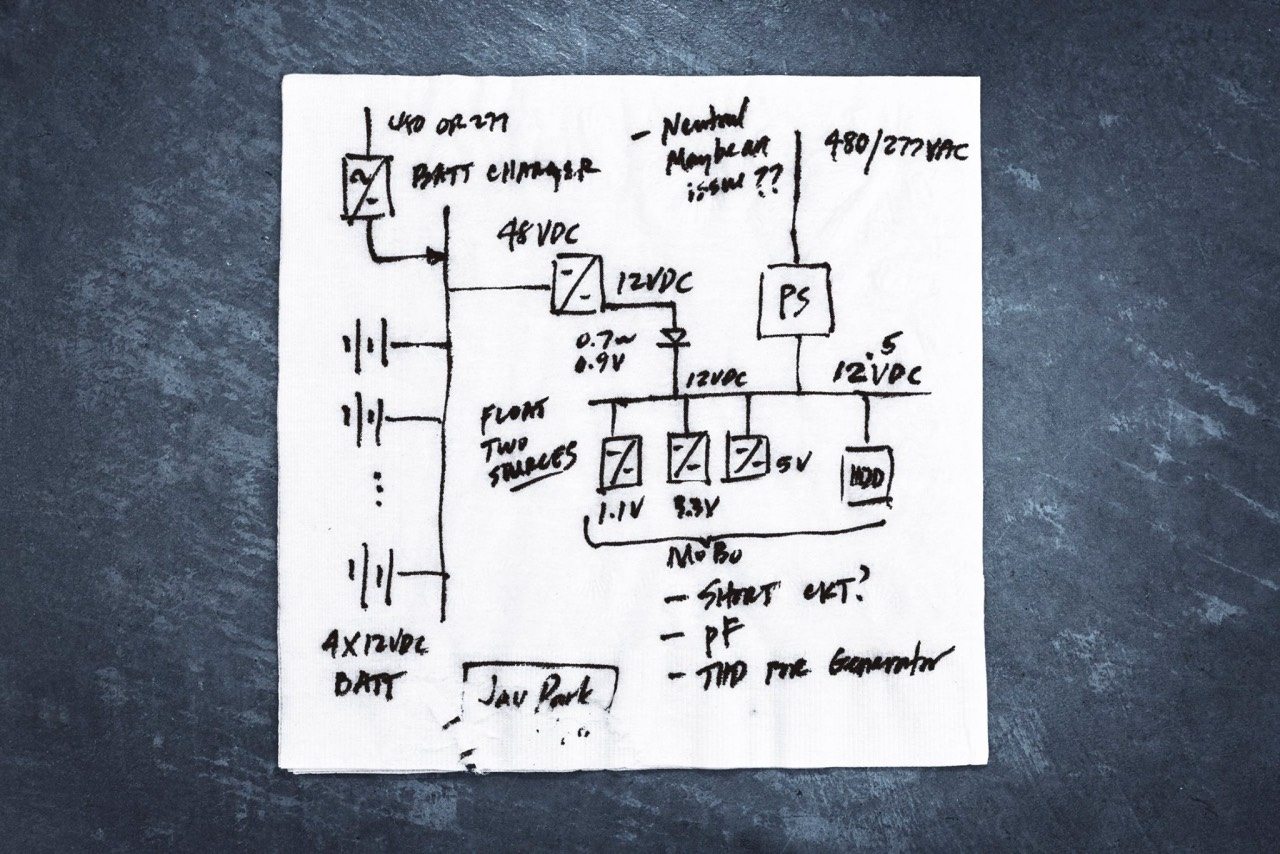 480 OR 277
BATT CHARGER
- Neutral
Maybe an
issue ??
480/277 VAC
48 VDC
12VDC
PS
0.7~
0.9V
12VDC
12.5 VDC
FLOAT
TWO
SOURCES
5V
HDD
1.1V
3.3V
MoBo
- SHORT CKT?
- PF
- THD FOR Generator
4X12VDC
BATT
Jay Park